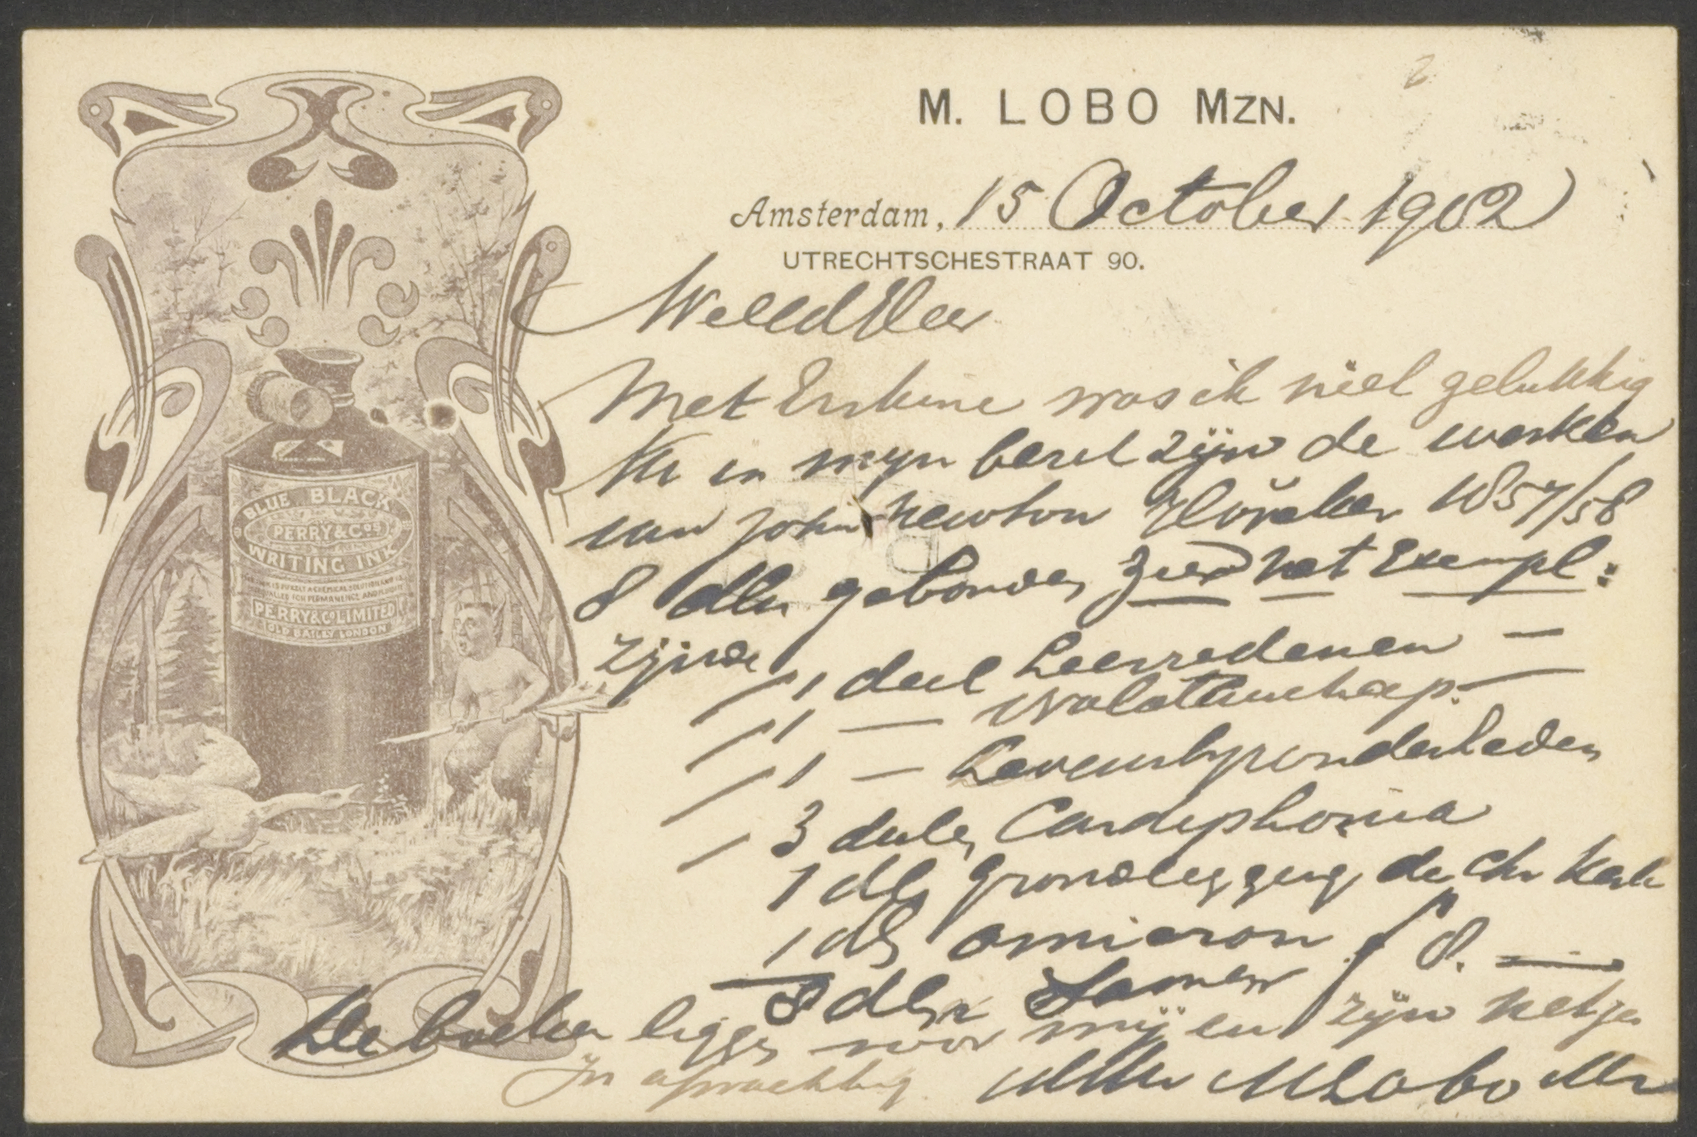 M. LOBO MZN.
Amsterdam, 15 October 1902
UTRECHTSCHESTRAAT 90.
WelEd Heer
Met Erskine was ik niet gelukkig
Nu in myn bezit zijn de werken
van John Newton Höveker 1857/58
8 dln gebonden zeer net Exempl:
zijnde
" 1 deel Leerredenen —
" 1 — Nalatenschap. —
" 1 — Levensbyzonderheden
— 3 deelen Cardiphonia
1 dl grondlegging de chr kerk
1 dl omicron
8 dln Samen f 8. —
De boeken liggen voor mij en zijn netjes
In afwachting M Lobo Mzn
BLUE BLACK
PERRY & Cos
WRITING INK
PERRY & Co LIMITED
OLD BAILEY LONDON